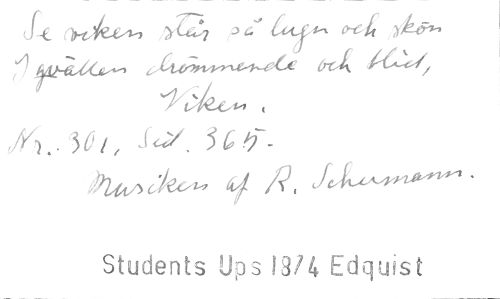 Se viken står så lugn och skön
I qvällen drömmande och blid,
Viken.
Nr. 301, Sid. 365-
Musiken af R. Schumann.
Students Ups 1874 Edquist